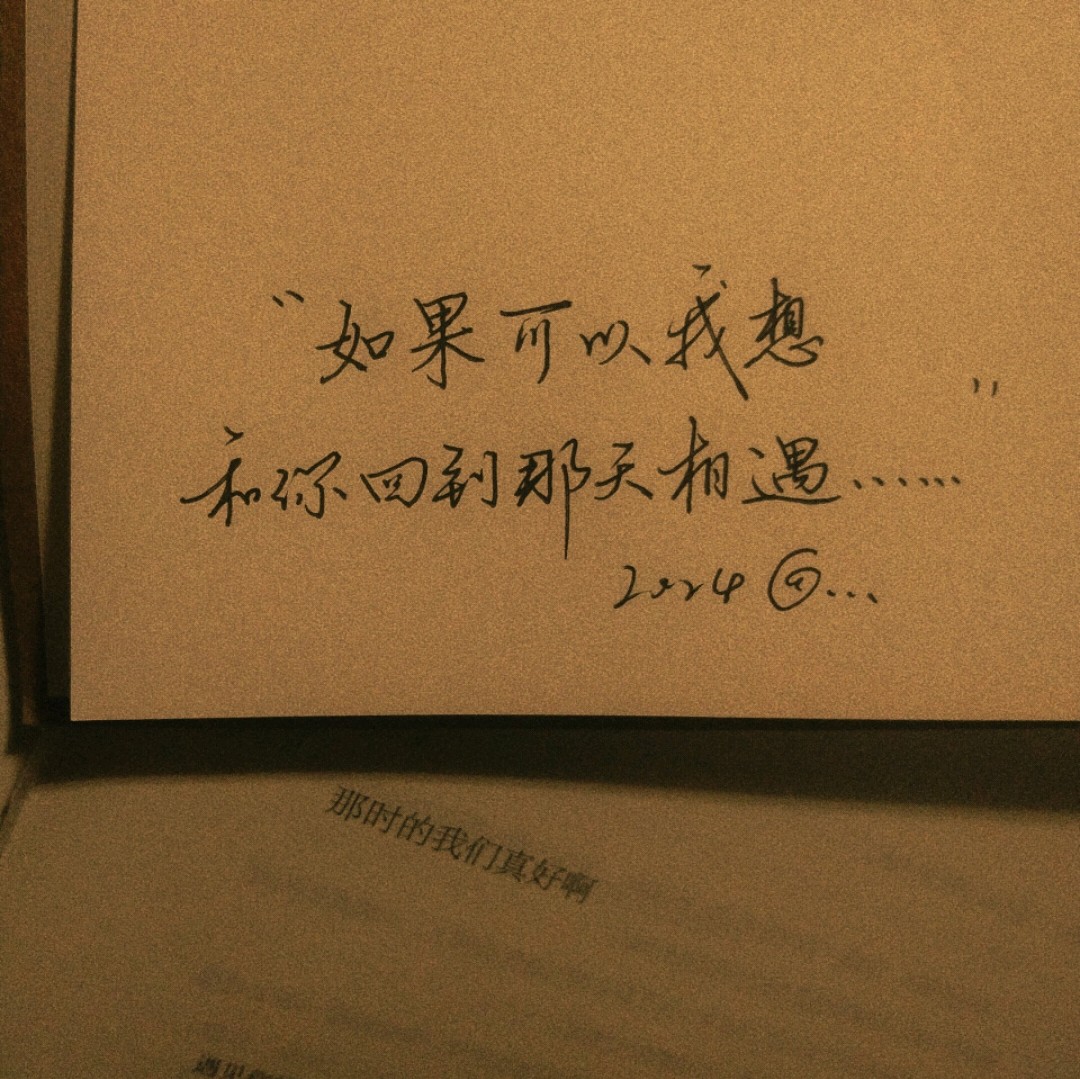 “如果可以我想
和你回到那天相遇……”
2024
那时的我们真好啊